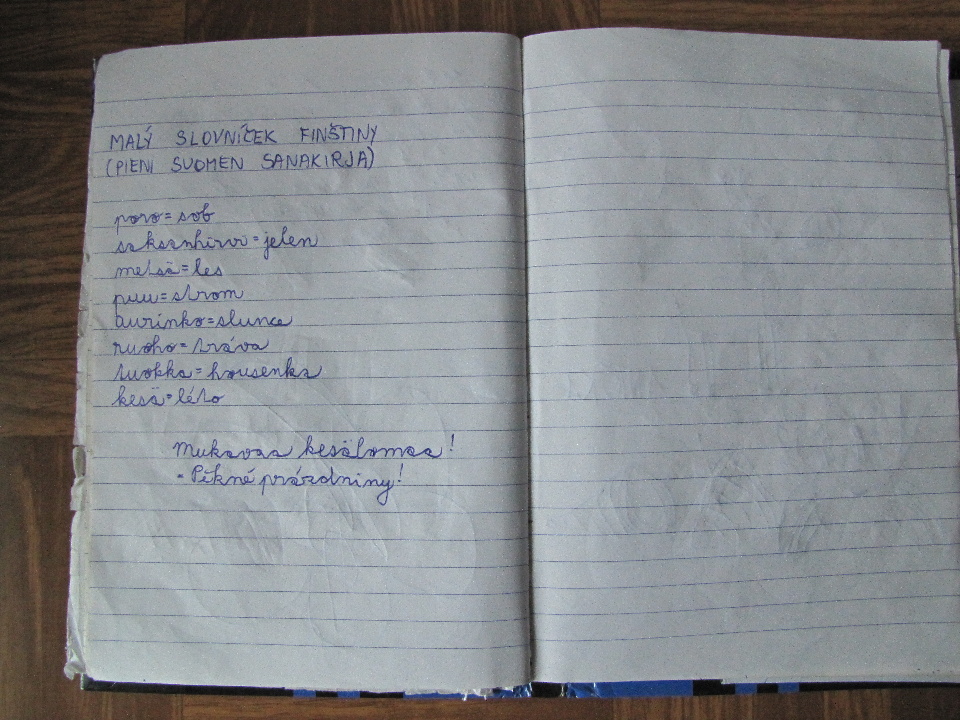 MALÝ SLOVNÍČEK FINŠTINY
(PIENI SUOMEN SANAKIRJA)
poro = sob
saksanhirvi = jelen
metsä = les
puu = strom
aurinko = slunce
ruoho = tráva
tuokka = housenka
kesä = léto
Mukavaa kesälomaa!
- Pěkné prázdniny!